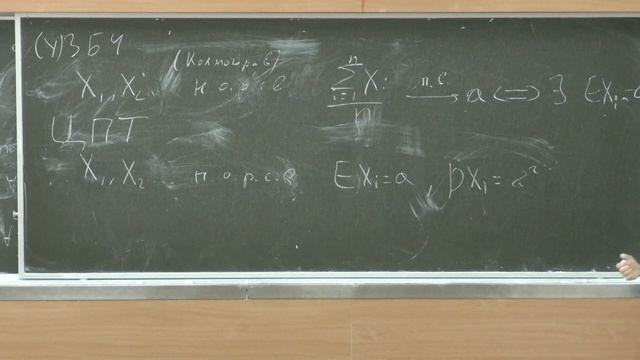 (У)ЗБЧ
(Колмогоров)
X₁, X₂.. н.о.р.с.в \frac{\sum_{i=1}^{n} X_i}{n} \xrightarrow{п.в} a ⟺ ∃ EX₁=a
ЦПТ
X₁, X₂ н.о.р.с.в EX₁=a, DX₁=σ²